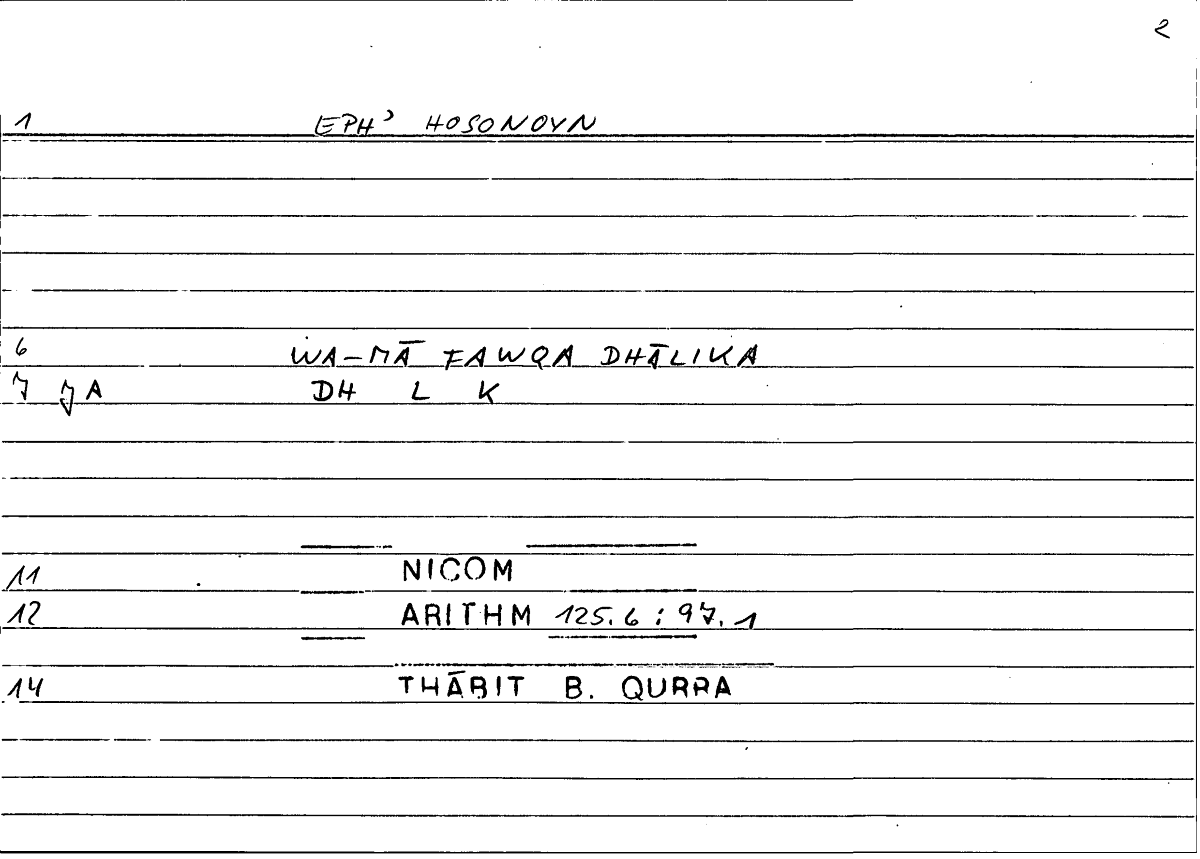 2
1 EPH' HOSONOYN
6 WA-MĀ FAWQA DHĀLIKA
7 JA DH L K
11 NICOM
12 ARITHM 125.6 : 97.1
14 THĀBIT B. QURRA